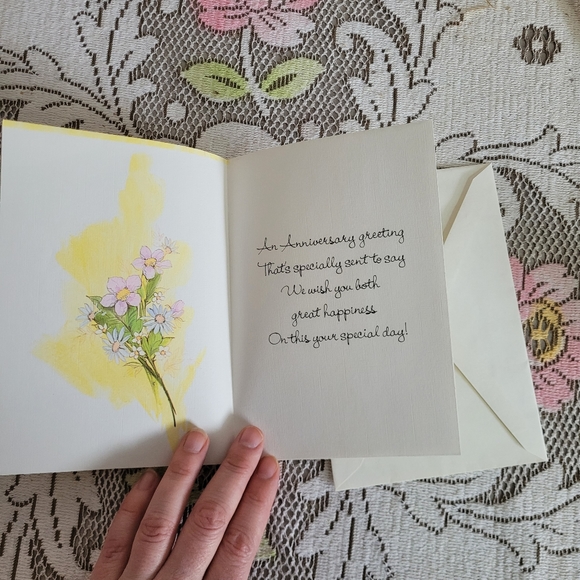 An Anniversary greeting
That's specially sent to say
We wish you both
great happiness
On this your special day!